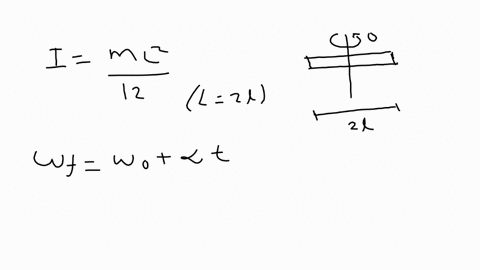 I = mL²/12
(L = 2l)
50
2l
ωf = ω0 + αt